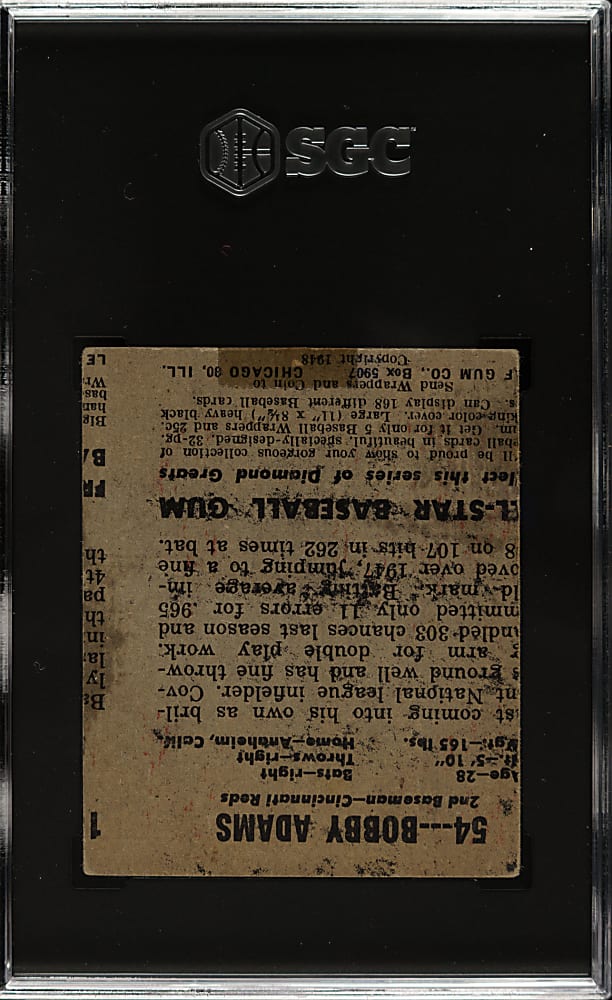 SGC
54---BOBBY ADAMS
2nd Baseman—Cincinnati Reds
Age—28 Bats-right
Ht—5' 10" Throws-right
Wgt:—165 lbs. Home—Anaheim, Calif.
st coming into his own as bril-
nt National league infielder. Cov-
s ground well and has fine throw-
g arm for double play work.
ndled 303 chances last season and
mmitted only 11 errors for .965
ld mark. Batting average im-
oved over 1947, jumping to a fine
8 on 107 hits in 262 times at bat.
L-STAR BASEBALL GUM
lect this series of Diamond Greats
'll be proud to show your gorgeous collection of
eball cards in beautiful, specially-designed, 32-pg.
um. Get it for only 5 Baseball Wrappers and 25c.
king-color cover. Large (11" x 8½") heavy black
s. Can display 168 different Baseball cards.
Send Wrappers and Coin to
F GUM CO., Box 5907 CHICAGO 80, ILL.
Copyright 1948
1
Ba
ly
la
in
th
pa
4t
th
FR
BA
Big
han
bas
Wr
LE